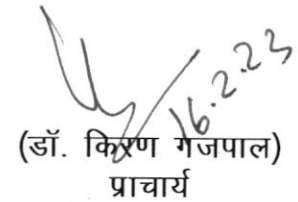 16.2.23
(डॉ. किरण गजपाल)
प्राचार्य